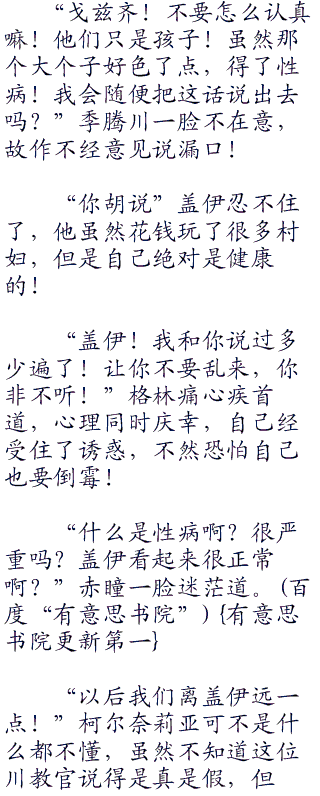 “戈兹齐！不要怎么认真
嘛！他们只是孩子！虽然那
个大个子好色了点，得了性
病！我会随便把这话说出去
吗？”季腾川一脸不在意，
故作不经意见说漏口！
“你胡说”盖伊忍不住
了，他虽然花钱玩了很多村
妇，但是自己绝对是健康
的！
“盖伊！我和你说过多
少遍了！让你不要乱来，你
非不听！”格林痛心疾首
道，心理同时庆幸，自己经
受住了诱惑，不然恐怕自己
也要倒霉！
“什么是性病啊？很严
重吗？盖伊看起来很正常
啊？”赤瞳一脸迷茫道。(百
度“有意思书院”) {有意思
书院更新第一}
“以后我们离盖伊远一
点！”柯尔奈莉亚可不是什
么都不懂，虽然不知道这位
川教官说得是真是假，但